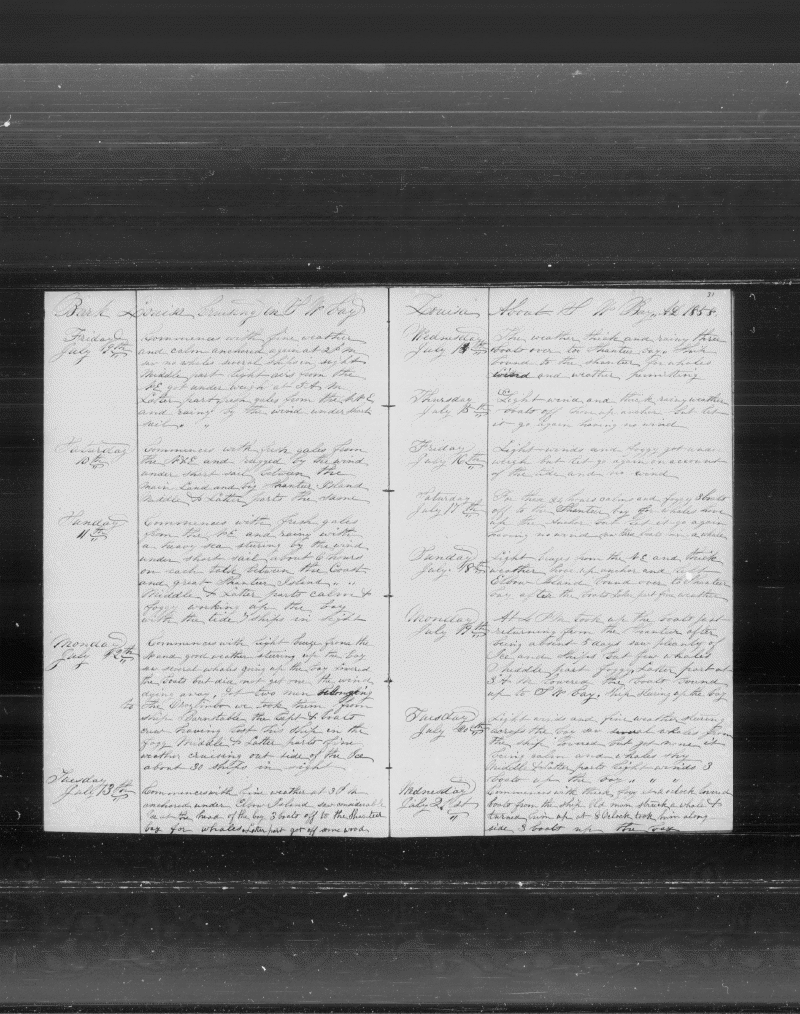 Bark Louisa Cruising in S W Bay
Friday July 9th Commences with fine weather
and calm anchored again at 2 P M
saw no whales several ships in sight
Middle part light airs from the
NE got under weigh at 3 A M
Latter part fresh gales from the NE
and rainy by the wind under short
sail " "
Saturday 10th Commences with fresh gales from
the NE and rugged by the wind
under short sail between the
Main Land and Big Shantier Island
Middle & Latter parts the same
Sunday 11th Commences with fresh gales
from the NE and rainy with
a heavy sea steering by the wind
under short sail about 6 hours
on each tack between the Coast
and great Shantier Island " "
Middle & Latter parts calm &
foggy working up the bay
with the tide 7 ships in sight
Monday July 12th Commences with light breeze from the
and good weather steering up the bay
saw several whales going up the bay lowered
the boats but did not get one the wind
dying away. Got two men belonging
to the we took them from
ship Barnstable the Capt & boats
crew having lost his ship in the
fogg Middle & Latter parts fine
weather cruising out side of the Ice
about 30 ships in sight
Tuesday July 13th Commences with fine weather at 3 P M
anchored under Elbow Island saw considerable
Ice at the head of the bay 3 boats off to the Shantier
bay for whales Latter part got off some wood
31
Louisa About S W Bay 1858
Wednesday July 14th The weather thick and rainy three
boats over to Shantier bay & took
bound to the shantier for whales
wind and weather permitting
Thursday July 15th Light wind and thick rainy weather
boats off hove up anchor but let
it go again having no wind
Friday July 16th Light winds and foggy got under
weigh but let go again on account
of the tide and no wind
Saturday July 17th For these 24 hours calms and foggy 3 boats
off to the Shantier bay for whales hove
up the Anchor but let it go again
having no wind
Sunday July 18th Light from the NE and thick
weather hove up anchor and left
Elbow Island bound over to Shantier
bay after the boats Later part fine weather
Monday July 19th At 4 P M took up the boats just
returning from the Shantier after
being absent 5 days saw pleanty of
Ice and ships but few whales
Middle part foggy Latter part at
3 A M lowered the boats bound
up to S W bay. Ship steering up the bay
Tuesday July 20th Light winds and fine weather steering
across the bay saw several whales from
the ship lowered but got none it
being calm and whales shy
Middle & Latter parts light winds 3
boats up the bay " " "
Wednesday July 21st Commences with thick fog at o clock lowered
boats from the ship Old man struck a whale &
turned him up at 8 Oclock took him along
side 3 boats up the bay